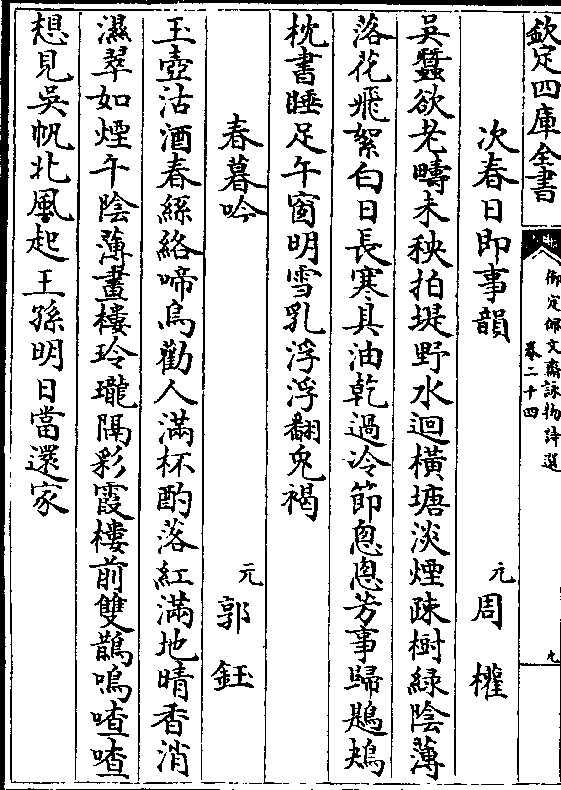 欽定四庫全書
御定佩文齋詠物詩選
卷二十四
九
次春日即事韻
元
周權
吳蠶欲老疇未秧拍堤野水迴橫塘淡煙疎樹綠陰薄
落花飛絮白日長寒具油乾過冷節悤悤芳事歸鶗鴂
枕書睡足午窗明雪乳浮浮翻兎褐
春暮吟
元
郭鈺
玉壺沽酒春絲絡啼鳥勸人滿杯酌落紅滿地晴香消
濕翠如煙午陰薄畫樓玲瓏隔彩霞樓前雙鵲鳴喳喳
想見吳帆北風起王孫明日當還家